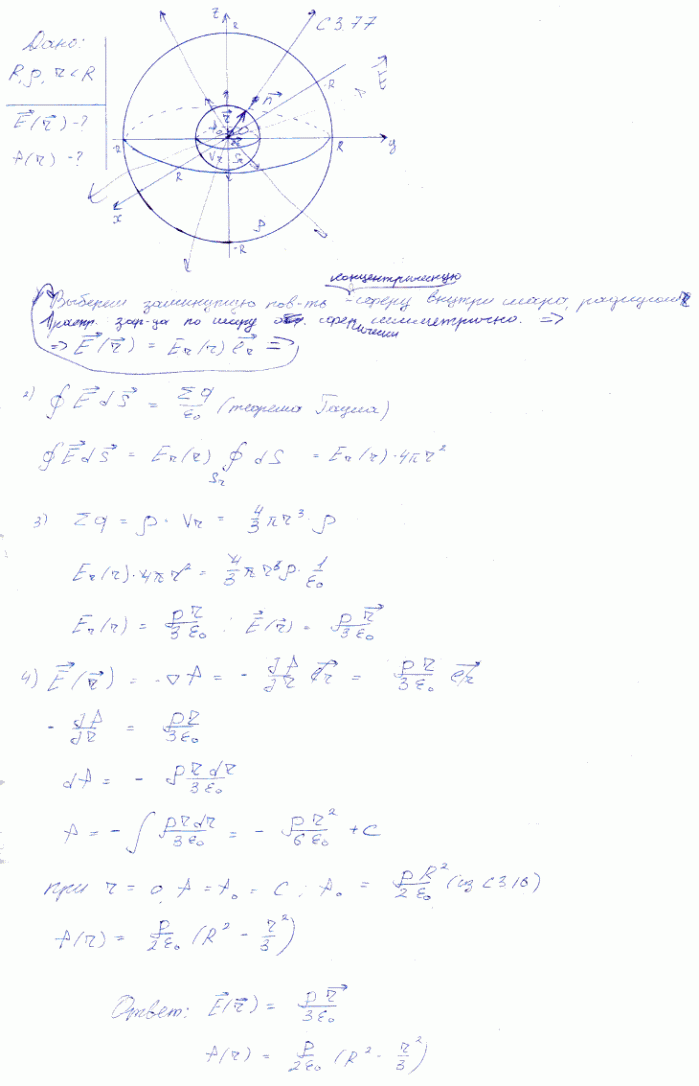 Дано:
R, ρ, r < R
E⃗(r⃗) - ?
φ(r) - ?
С 3.77
z
r
n⃗
E⃗
R
r
y
x
R
R
-R
V_r
S_r
ρ
-R
концентрическую
1) Выберем замкнутую пов-ть - сферу внутри шара, радиусом r
распр. зар-да по шару сферически симметрично. =>
=> E⃗(r⃗) = E_r(r) e⃗_r =>
2) ∮ E⃗ dS⃗ = Σq/ε₀ (теорема Гаусса)
∮ E⃗ dS⃗ = E_r(r) ∮_{S_r} dS = E_r(r)·4πr²
3) Σq = ρ · V_r = 4/3 πr³ · ρ
E_r(r)·4πr² = 4/3 πr³ρ · 1/ε₀
E_r(r) = ρr/3ε₀ ; E⃗(r⃗) = ρr⃗/3ε₀
4) E⃗(r⃗) = -∇φ = - dφ/dr e⃗_r = ρr/3ε₀ e⃗_r
- dφ/dr = ρr/3ε₀
dφ = - ρr dr/3ε₀
φ = - ∫ ρr dr/3ε₀ = - ρr²/6ε₀ + C
при r = 0, φ = φ₀ = C ; φ₀ = ρR²/2ε₀ (из С 3.18)
φ(r) = ρ/2ε₀ (R² - r²/3)
Ответ: E⃗(r⃗) = ρr⃗/3ε₀
φ(r) = ρ/2ε₀ (R² - r²/3)